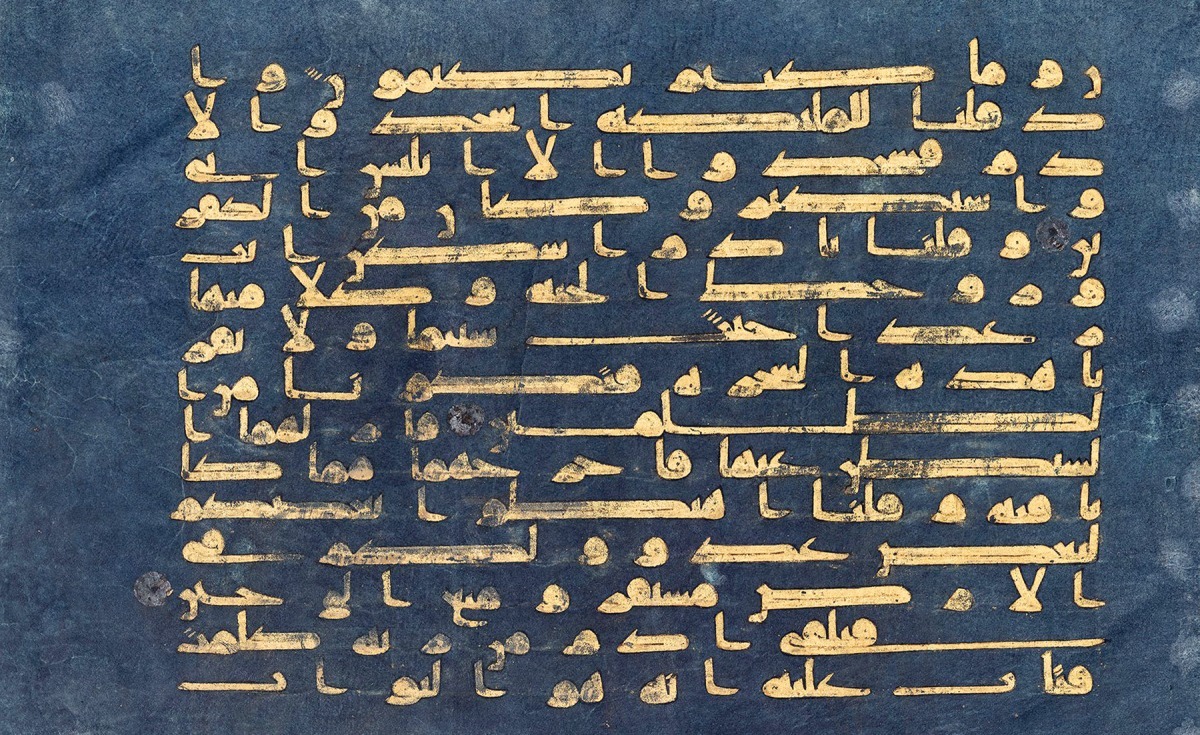 ر و ما كنتم تكتمون و ا
ذ قلنا للملئكة اسجدوا لا
دم فسجدوا الا ابليس ابى
و استكبر و كان من الكفر
ين و قلنا يادم اسكن انت
و زوجك الجنة و كلا منها
رغدا حيث شئتما و لا تقر
با هذه الشجرة فتكونا من ا
لظلمين فازلهما ا
لشيطن عنها فاخرجهما مما كا
نا فيه و قلنا اهبطوا بعضكم
لبعض عدو و لكم في
الارض مستقر و متع الى حين
فتلقى ادم من ربه كلمت
فتاب عليه انه هو التواب